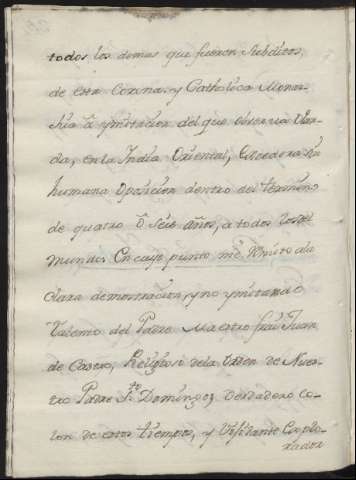 todos los demas que fueren Subditos,
de esta Corona, y Catholica Monar-
chia â ymitacion del que observa
da, en la India Oriental, excedera sin
humana oposicion dentro del termino
de quatro ô seis años, a todos los del
mundo. En cuyo punto me remito ala
clara demonstracion, y no ymitando
Talento del Padre Maestro frai Juan
de Castro, Religioso dela orden de Nues-
tro Padre Sto. Domingo, verdadero Co-
lon de estos tiempos, y Visitante Explo-
rador